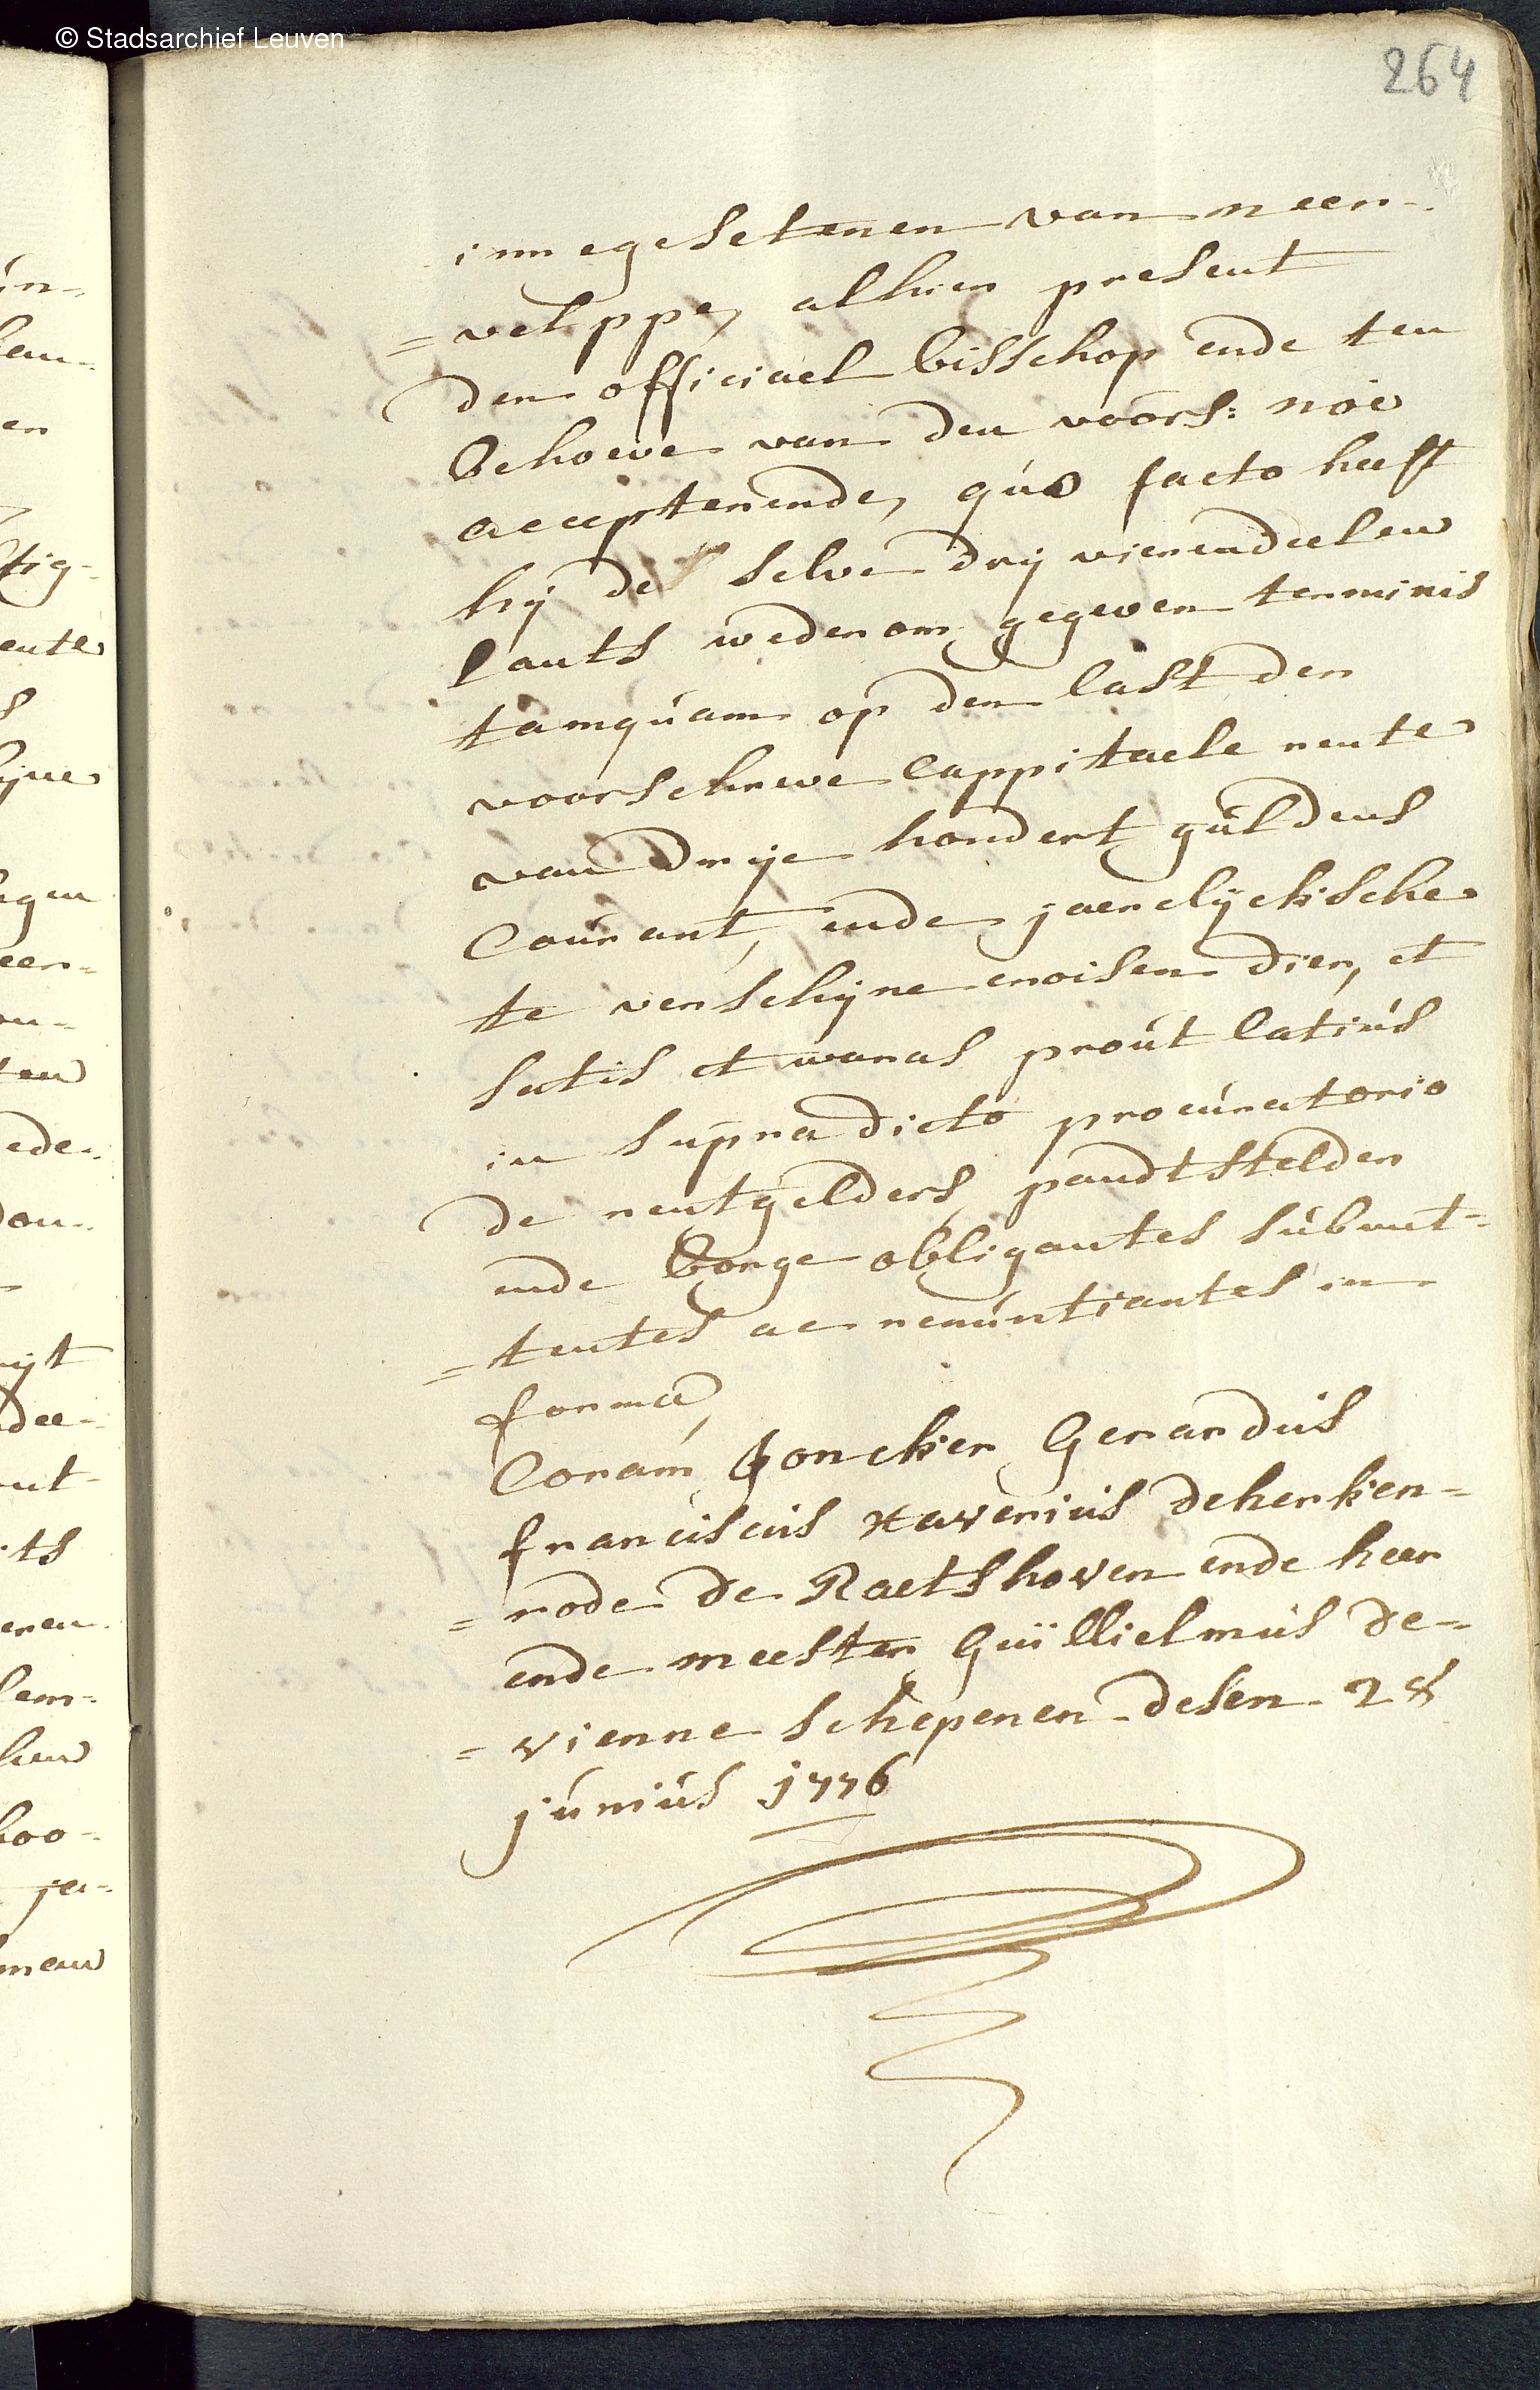 © Stadsarchief Leuven
264
innegesetenen van neer-
=velppe, alhier present
den officiael bisschop ende ten
behoeve van den voors: noie
accepterende, quo facto heeft
hij de selve drij vierendeelen
lants wederom gegeven terminis
tamquam op den last der
voorschreve cappitaele rente
van drije hondert guldens
Courant, ende jaerelijcksche
te verschijne croisen dier, et
satis et waras prout latius
in supradicto procuratorio
de rentgelders pandtstelder
ende borge obligantes submit=
=tentes ac renuntiantes in
forma,
Coram Joncker Gerardus
franciscus xaverius deherken=
=rode de Raetshoven ende heer
ende meester Guïllielmus de=
=vienne schepenen desen 28
junius 1776